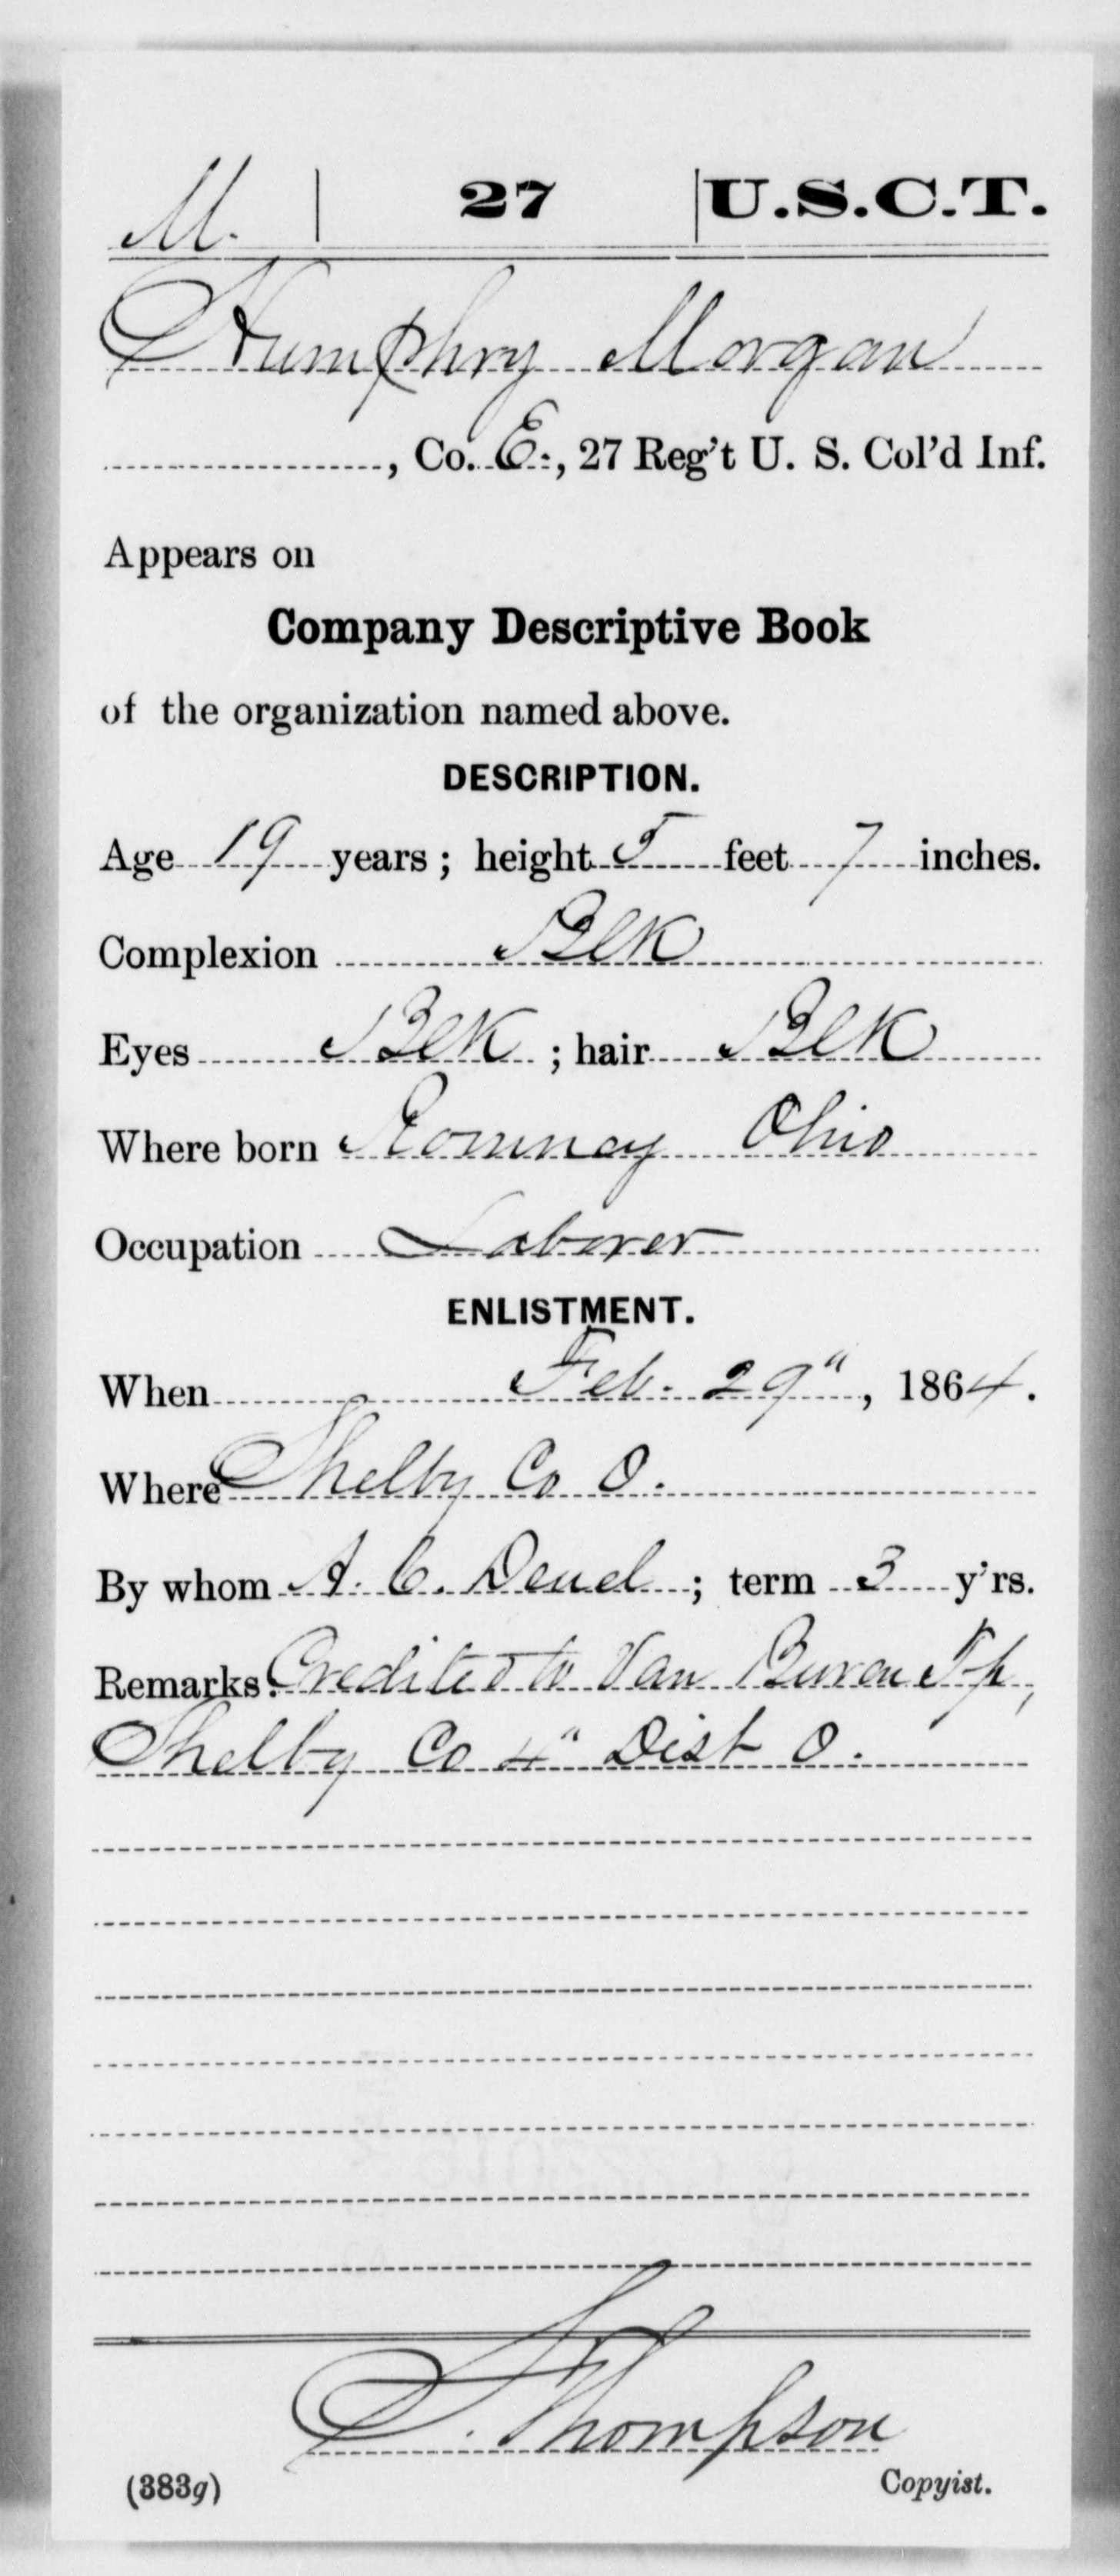 M. | 27 | U.S.C.T.
Humphry Morgan
, Co. E., 27 Reg't U. S. Col'd Inf.
Appears on
Company Descriptive Book
of the organization named above.
DESCRIPTION.
Age 19 years; height 5 feet 7 inches.
Complexion Blk
Eyes Blk; hair Blk
Where born Romney Ohio
Occupation Laborer
ENLISTMENT.
When Feb. 29", 1864.
Where Shelby Co O.
By whom A. C. Deuel; term 3 y'rs.
Remarks: Credited to Van Buren Tp,
Shelby Co 4" Dist O.
Thompson
(383g) Copyist.